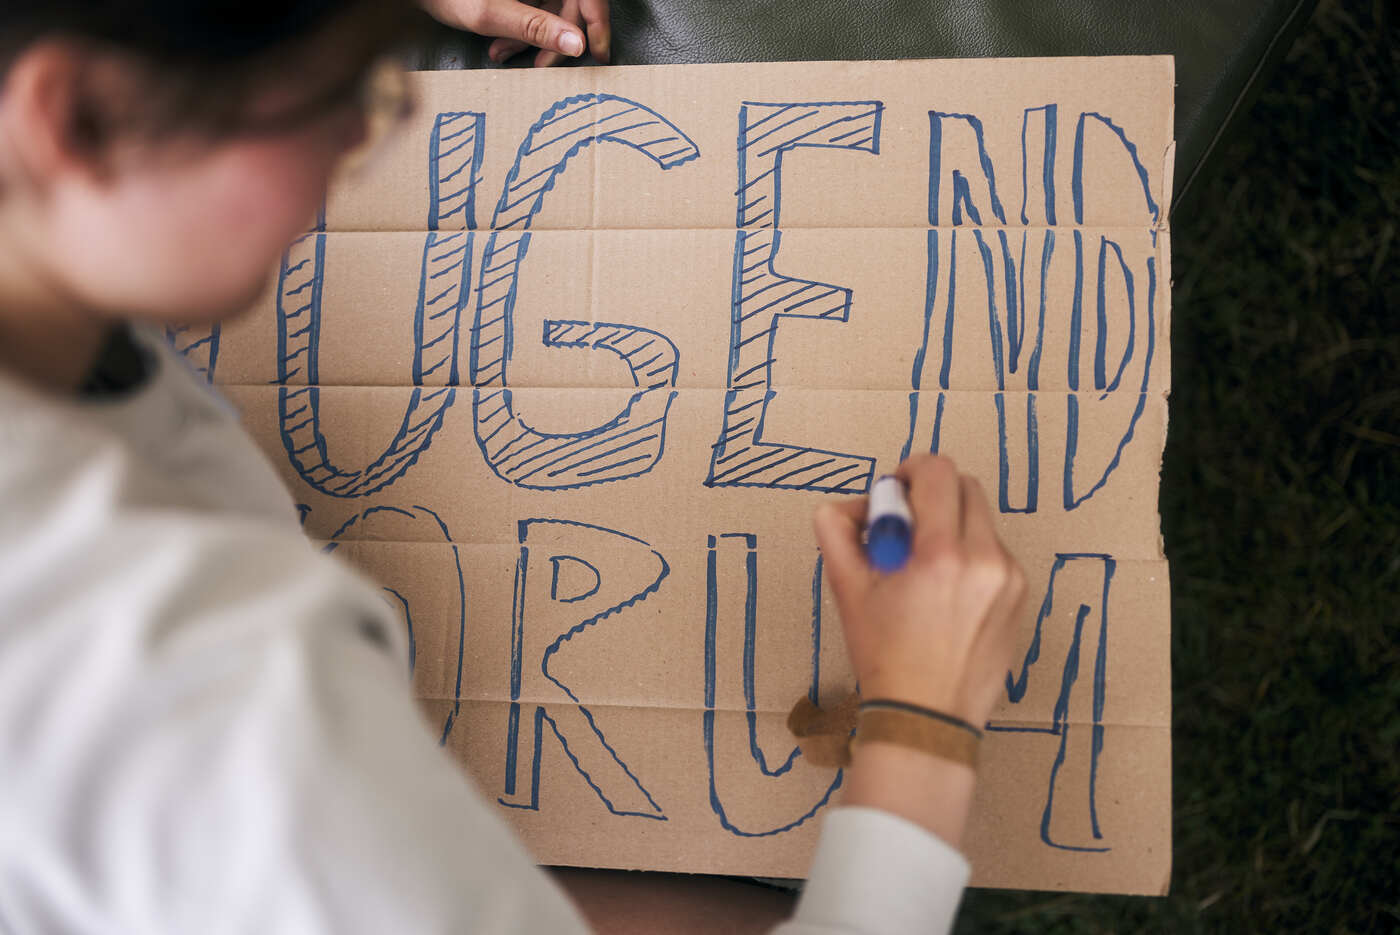 JUGEND
FORUM